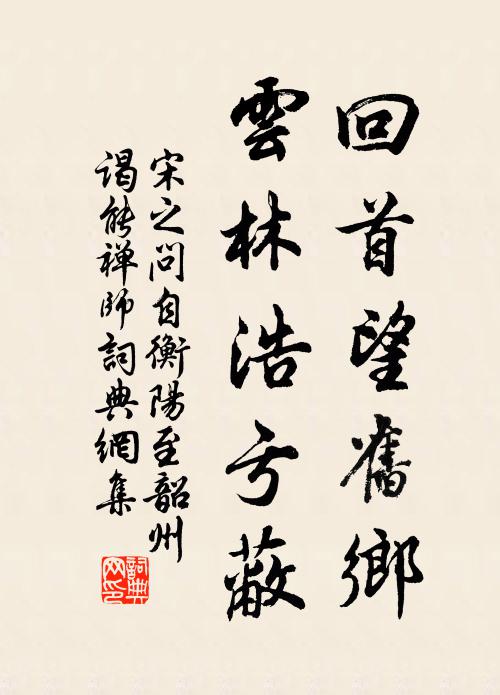 回首望舊鄉
雲林浩亏蔽
宋之問自衡陽至韶州
謁能禅師詞典網集
詞典网印